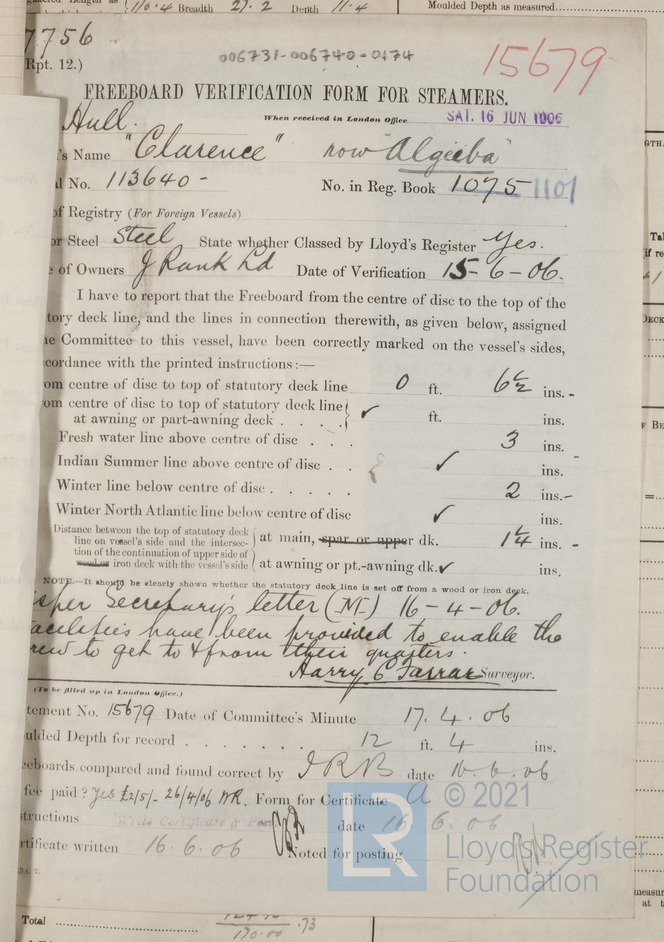 110.4 Breadth 27.2 Depth 11.4 Moulded Depth as measured
7756
006731-006740-0174
15679
Rpt. 12.)
FREEBOARD VERIFICATION FORM FOR STEAMERS.
Hull. When received in London Office SAT. 16 JUN 1906
's Name "Clarence" now "Algeiba"
l No. 113640 - No. in Reg. Book 1075 1101
of Registry (For Foreign Vessels)
or Steel Steel State whether Classed by Lloyd's Register Yes.
e of Owners J Rank Ld Date of Verification 15-6-06.
I have to report that the Freeboard from the centre of disc to the top of the
tory deck line, and the lines in connection therewith, as given below, assigned
e Committee to this vessel, have been correctly marked on the vessel's sides,
cordance with the printed instructions:—
om centre of disc to top of statutory deck line 0 ft. 6½ ins. -
om centre of disc to top of statutory deck line
at awning or part-awning deck . . . . ✓ ft. ins.
Fresh water line above centre of disc . . . 3 ins.
Indian Summer line above centre of disc . . ✓ ins.
Winter line below centre of disc . . . . . 2 ins.-
Winter North Atlantic line below centre of disc ✓ ins.
Distance between the top of statutory deck
line on vessel's side and the intersec-
tion of the continuation of upper side of
wood or iron deck with the vessel's side
at main, spar or upper dk. 1¼ ins. -
at awning or pt.-awning dk. ✓ ins.
NOTE.—It should be clearly shown whether the statutory deck line is set off from a wood or iron deck.
as per Secretary's letter (M) 16-4-06.
facilities have been provided to enable the
crew to get to & from their quarters.
Harry C Farrar Surveyor.
(To be filled up in London Office.)
tement No. 15679 Date of Committee's Minute 17.4.06
ulded Depth for record . . . . . . . 12 ft. 4 ins.
eeboards compared and found correct by JRB date 16.6.06
fee paid? Yes £2/5/- 26/4/06 WR. Form for Certificate A
structions Write Certificate & Post date 16.6.06
rtificate written 16.6.06 Noted for posting
© 2021
LR
Lloyd's Register
Foundation
Total 170.00 .73